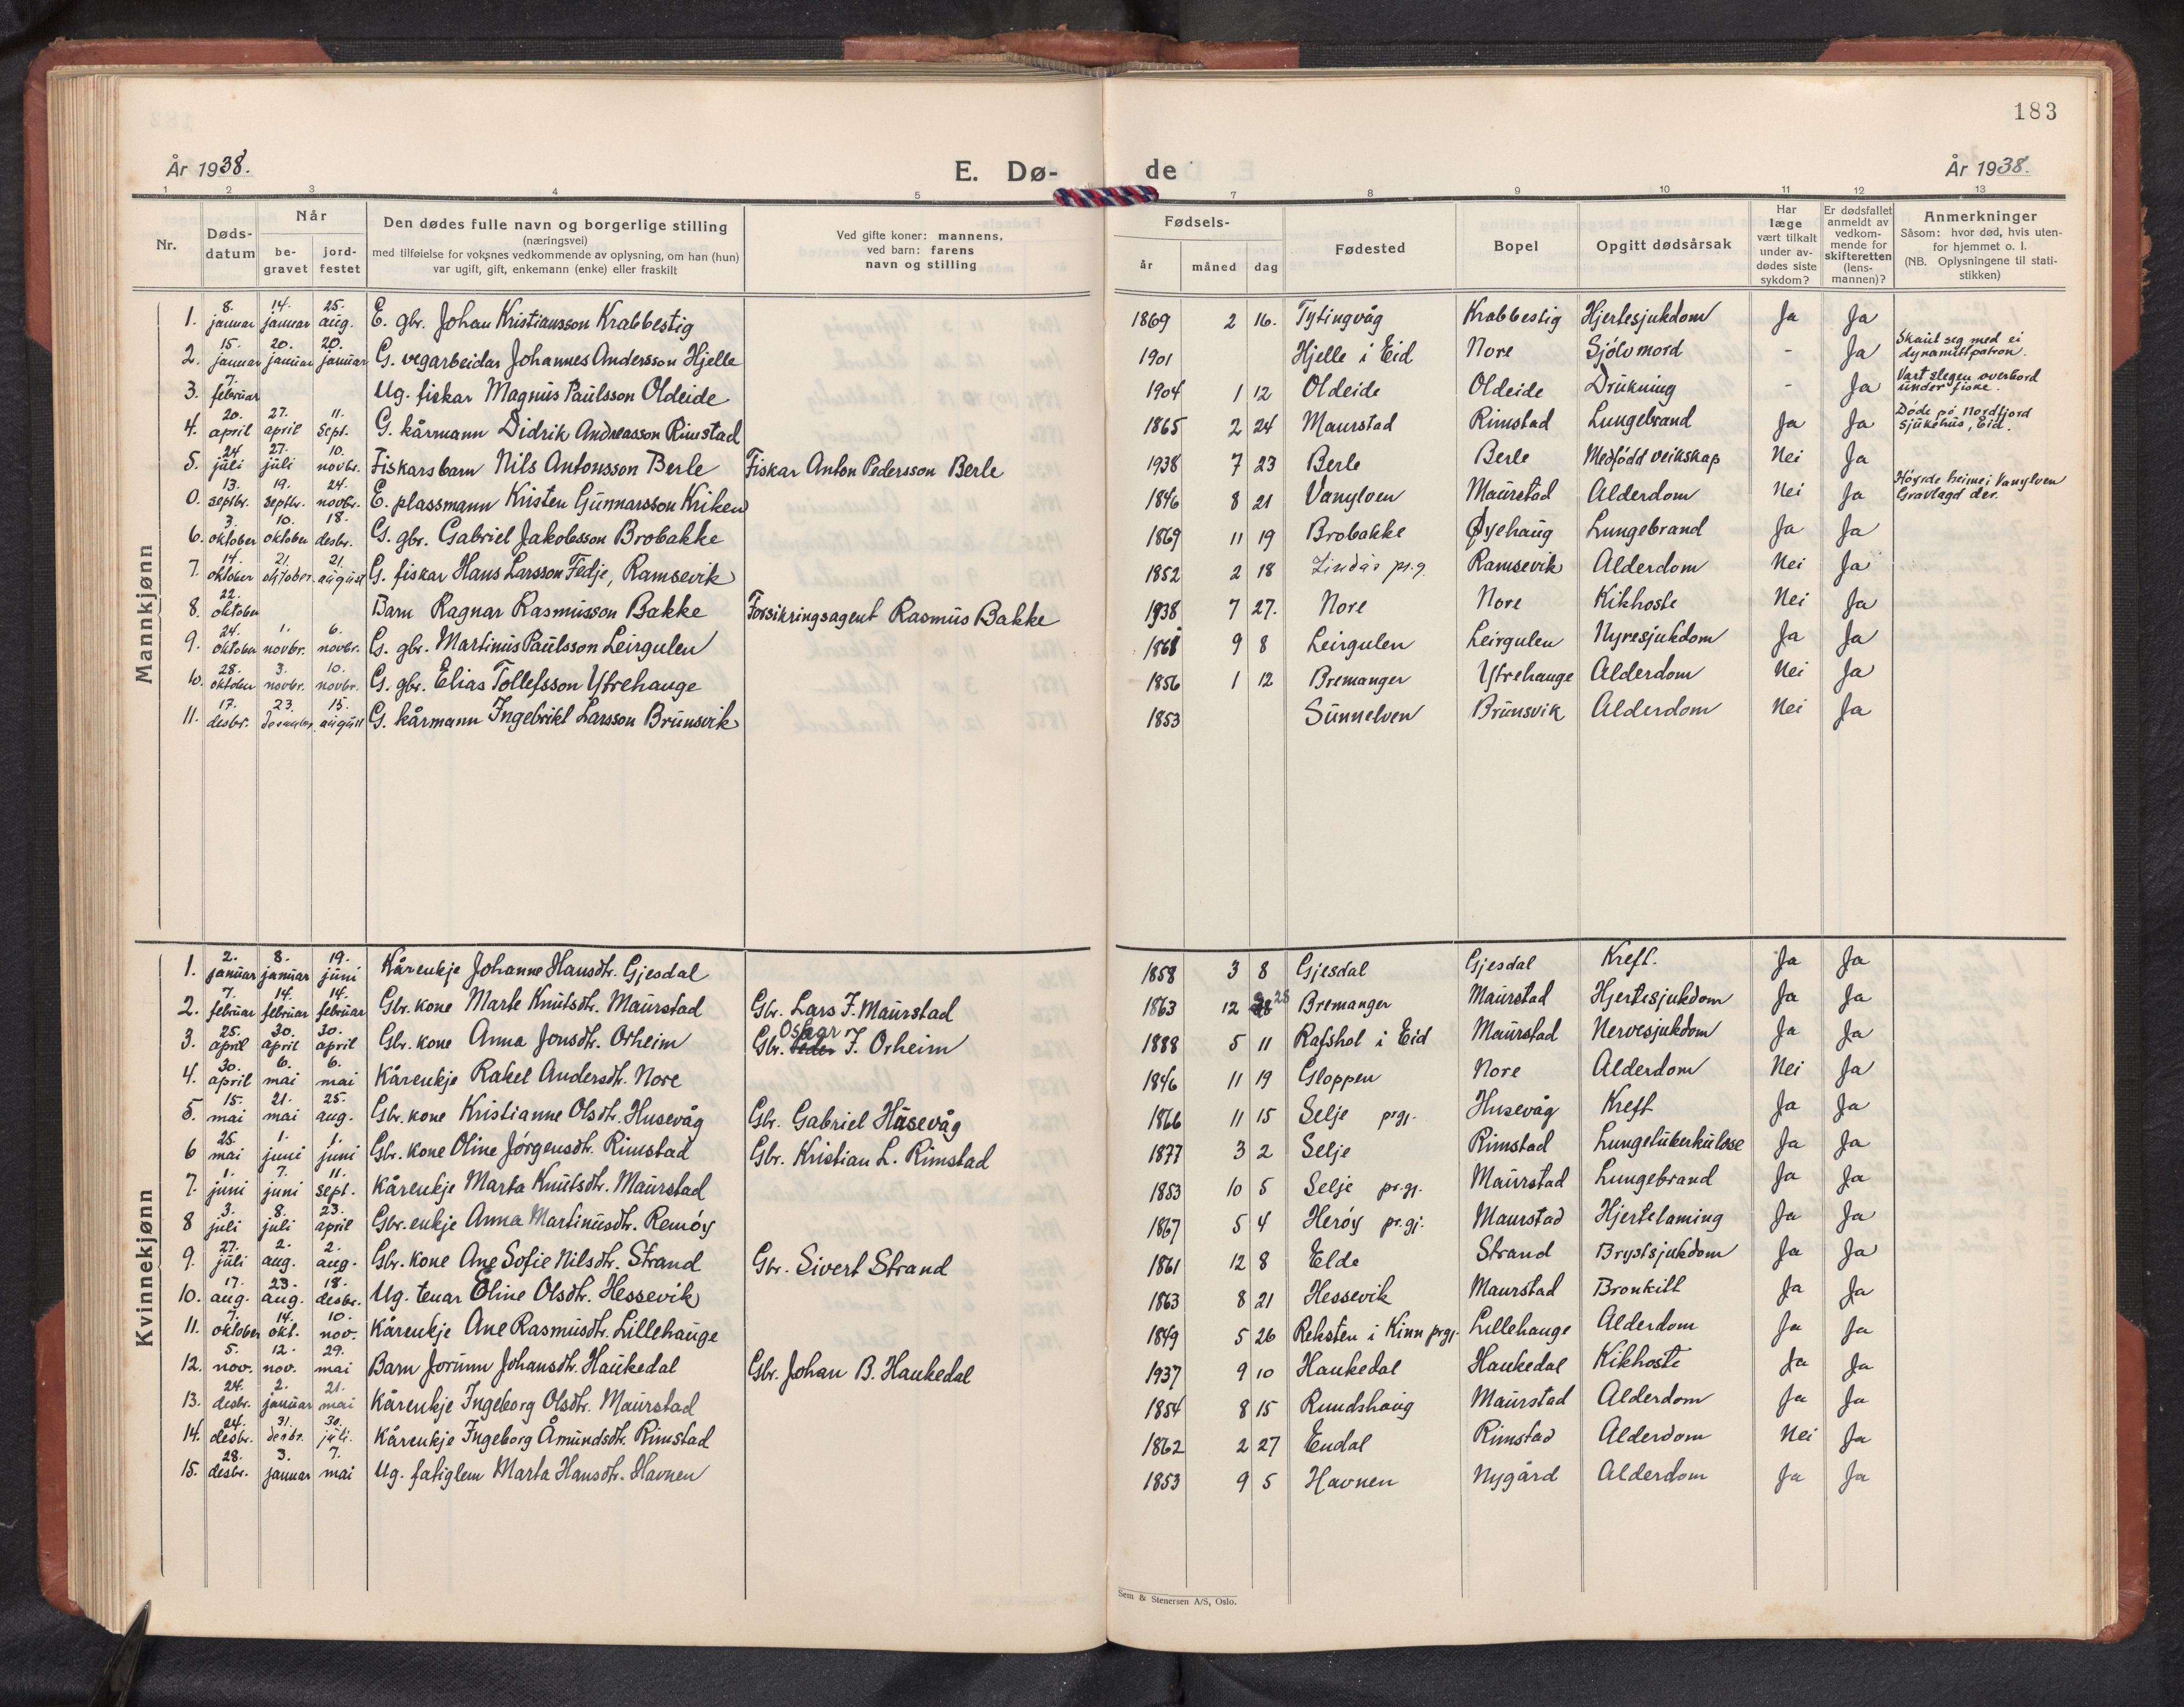 183
År 1938.
E. Dø-
de
År 1938.
1 2 3 4 5 7 8 9 10 11 12 13
Nr.
Døds-
datum
Når
be-
gravet
jord-
festet
Den dødes fulle navn og borgerlige stilling
(næringsvei)
med tilføielse for voksnes vedkommende av oplysning, om han (hun)
var ugift, gift, enkemann (enke) eller fraskilt
Ved gifte koner: mannens,
ved barn: farens
navn og stilling
Fødsels-
år måned dag
Fødested
Bopel
Opgitt dødsårsak
Har
læge
vært tilkalt
under av-
dødes siste
sykdom?
Er dødsfallet
anmeldt av
vedkom-
mende for
skifteretten
(lens-
mannen)?
Anmerkninger
Såsom: hvor død, hvis uten-
for hjemmet o. l.
(NB. Oplysningene til stati-
stikken)
Mannkjønn
1. 8. januar 14. januar 25. aug. E. gbr. Johan Kristiansson Krabbestig 1869 2 16. Tytingvåg Krabbestig Hjertesjukdom Ja Ja
2. 15. januar 20. januar 20. januar G. vegarbeidar Johannes Andersson Hjelle 1901 Hjelle i Eid Nore Sjölvmord - Ja Skaut seg med ei dynamittpatron.
3. 7. februar Ug. fiskar Magnus Paulsson Oldeide 1904 1 12 Oldeide Oldeide Drukning - Ja Vart slegen overbord under fiske.
4. 20. april 27. april 11. sept. G. kårmann Didrik Andreasson Rimstad 1865 2 24 Maurstad Rimstad Lungebrand Ja Ja Døde på Nordfjord sjukehus, Eid.
5. 24 juli 27. juli 10. novbr. Fiskarsbarn Nils Antonsson Berle Fiskar Anton Pedersson Berle 1938 7 23 Berle Berle Medfödd veikskap Nei Ja
0. 13. septbr. 19. septbr. 24. novbr. E. plassmann Kristen Gunnarsson Kriken 1846 8 21 Vanylven Maurstad Alderdom Nei Ja Höyrde heime i Vanylven Gravlagd der.
6. 3. oktober 10. oktober 18. desbr. G. gbr. Gabriel Jakobsson Brobakke 1869 11 19 Brobakke Øyehaug Lungebrand Ja Ja
7. 14. oktober 21. oktober 21. august G. fiskar Hans Larsson Fedje, Ramsevik 1852 2 18 Lindås pr.g. Ramsevik Alderdom Nei Ja
8. 22. oktober Barn Ragnar Rasmusson Bakke Forsikringsagent Rasmus Bakke 1938 7 27. Nore Nore Kikhoste Nei Ja
9. 24. oktober 1. novbr. 6. novbr. G. gbr. Martinus Paulsson Leirgulen 1868 9 8 Leirgulen Leirgulen Nyresjukdom Ja Ja
10. 28. oktober 3. novbr. 10. novbr. G. gbr. Elias Tollefsson Ytrehauge 1856 1 12 Bremanger Ytrehauge Alderdom Nei Ja
11. 17. desbr. 23. december 15. august G. kårmann Ingebrikt Larsson Brunsvik 1853 Sunnelven Brunsvik Alderdom Nei Ja
Kvinnekjønn
1. 2. januar 8. januar 19. juni Kårenkje Johanne Hansdtr. Gjesdal 1858 3 8 Gjesdal Gjesdal Kreft. Ja Ja
2. 7. februar 14. februar 14. februar Gbr. kone Marte Knutsdtr. Maurstad Gbr. Lars J. Maurstad 1863 12 28 Bremanger Maurstad Hjertesjukdom Ja Ja
3. 25. april 30. april 30. april Gbr. kone Anna Jonsdtr. Orheim Gbr. Peder Oskar J. Orheim 1888 5 11 Rafshol i Eid Maurstad Nervesjukdom Ja Ja
4. 30. april 6. mai 6. mai Kårenkje Rakel Andersdtr. Nore 1846 11 19 Gloppen Nore Alderdom Nei Ja
5. 15. mai 21. mai 25. aug. Gbr. kone Kristianne Olsdtr. Husevåg Gbr. Gabriel Håsevåg 1866 11 15 Selje prgj. Husevåg Kreft Ja Ja
6 25. mai 1. juni 1. juni Gbr. kone Oline Jörgensdtr. Rimstad Gbr. Kristian L. Rimstad 1877 3 2 Selje Rimstad Lungetuberkulose Ja Ja
7. 1. juni 7. juni 11. sept. Kårenkje Marta Knutsdtr. Maurstad 1853 10 5 Selje pr.gj. Maurstad Lungebrand Ja Ja
8 3. juli 8. juli 23. april Gbr. enkje Anna Martinusdtr. Remöy 1867 5 4 Heröy pr.gj. Maurstad Hjertelaming Ja Ja
9. 27. juli 2. aug. 2. aug. Gbr. kone Ane Sofie Nilsdtr. Strand Gbr. Sivert Strand 1861 12 8 Elde Strand Brystsjukdom Ja Ja
10. 17. aug. 23. aug. 18. desbr. Ug. tenar Eline Olsdtr. Hessevik 1863 8 21 Hessevik Maurstad Bronkitt Ja Ja
11. 7. oktober 14. okt. 10. nov. Kårenkje Ane Rasmusdtr. Lillehauge 1849 5 26 Reksten i Kinn prgj. Lillehauge Alderdom Ja Ja
12. 5. nov. 12. nov. 29. mai Barn Jorunn Johansdtr. Haukedal Gbr. Johan B. Haukedal 1937 9 10 Haukedal Haukedal Kikhoste Ja Ja
13. 24. desbr. 2. januar 21. mai Kårenkje Ingeborg Olsdtr. Maurstad 1854 8 15 Rundshaug Maurstad Alderdom Ja Ja
14. 24. desbr. 31. desbr. 30. juli. Kårenkje Ingeborg Åmundsdtr. Rimstad 1862 2 27 Endal Rimstad Alderdom Nei Ja
15. 28. desbr. 3. januar 7. mai Ug. fatiglem Marta Hansdtr. Havnen 1853 9 5 Havnen Nygård Alderdom Ja Ja
Sem & Stenersen A/S, Oslo.